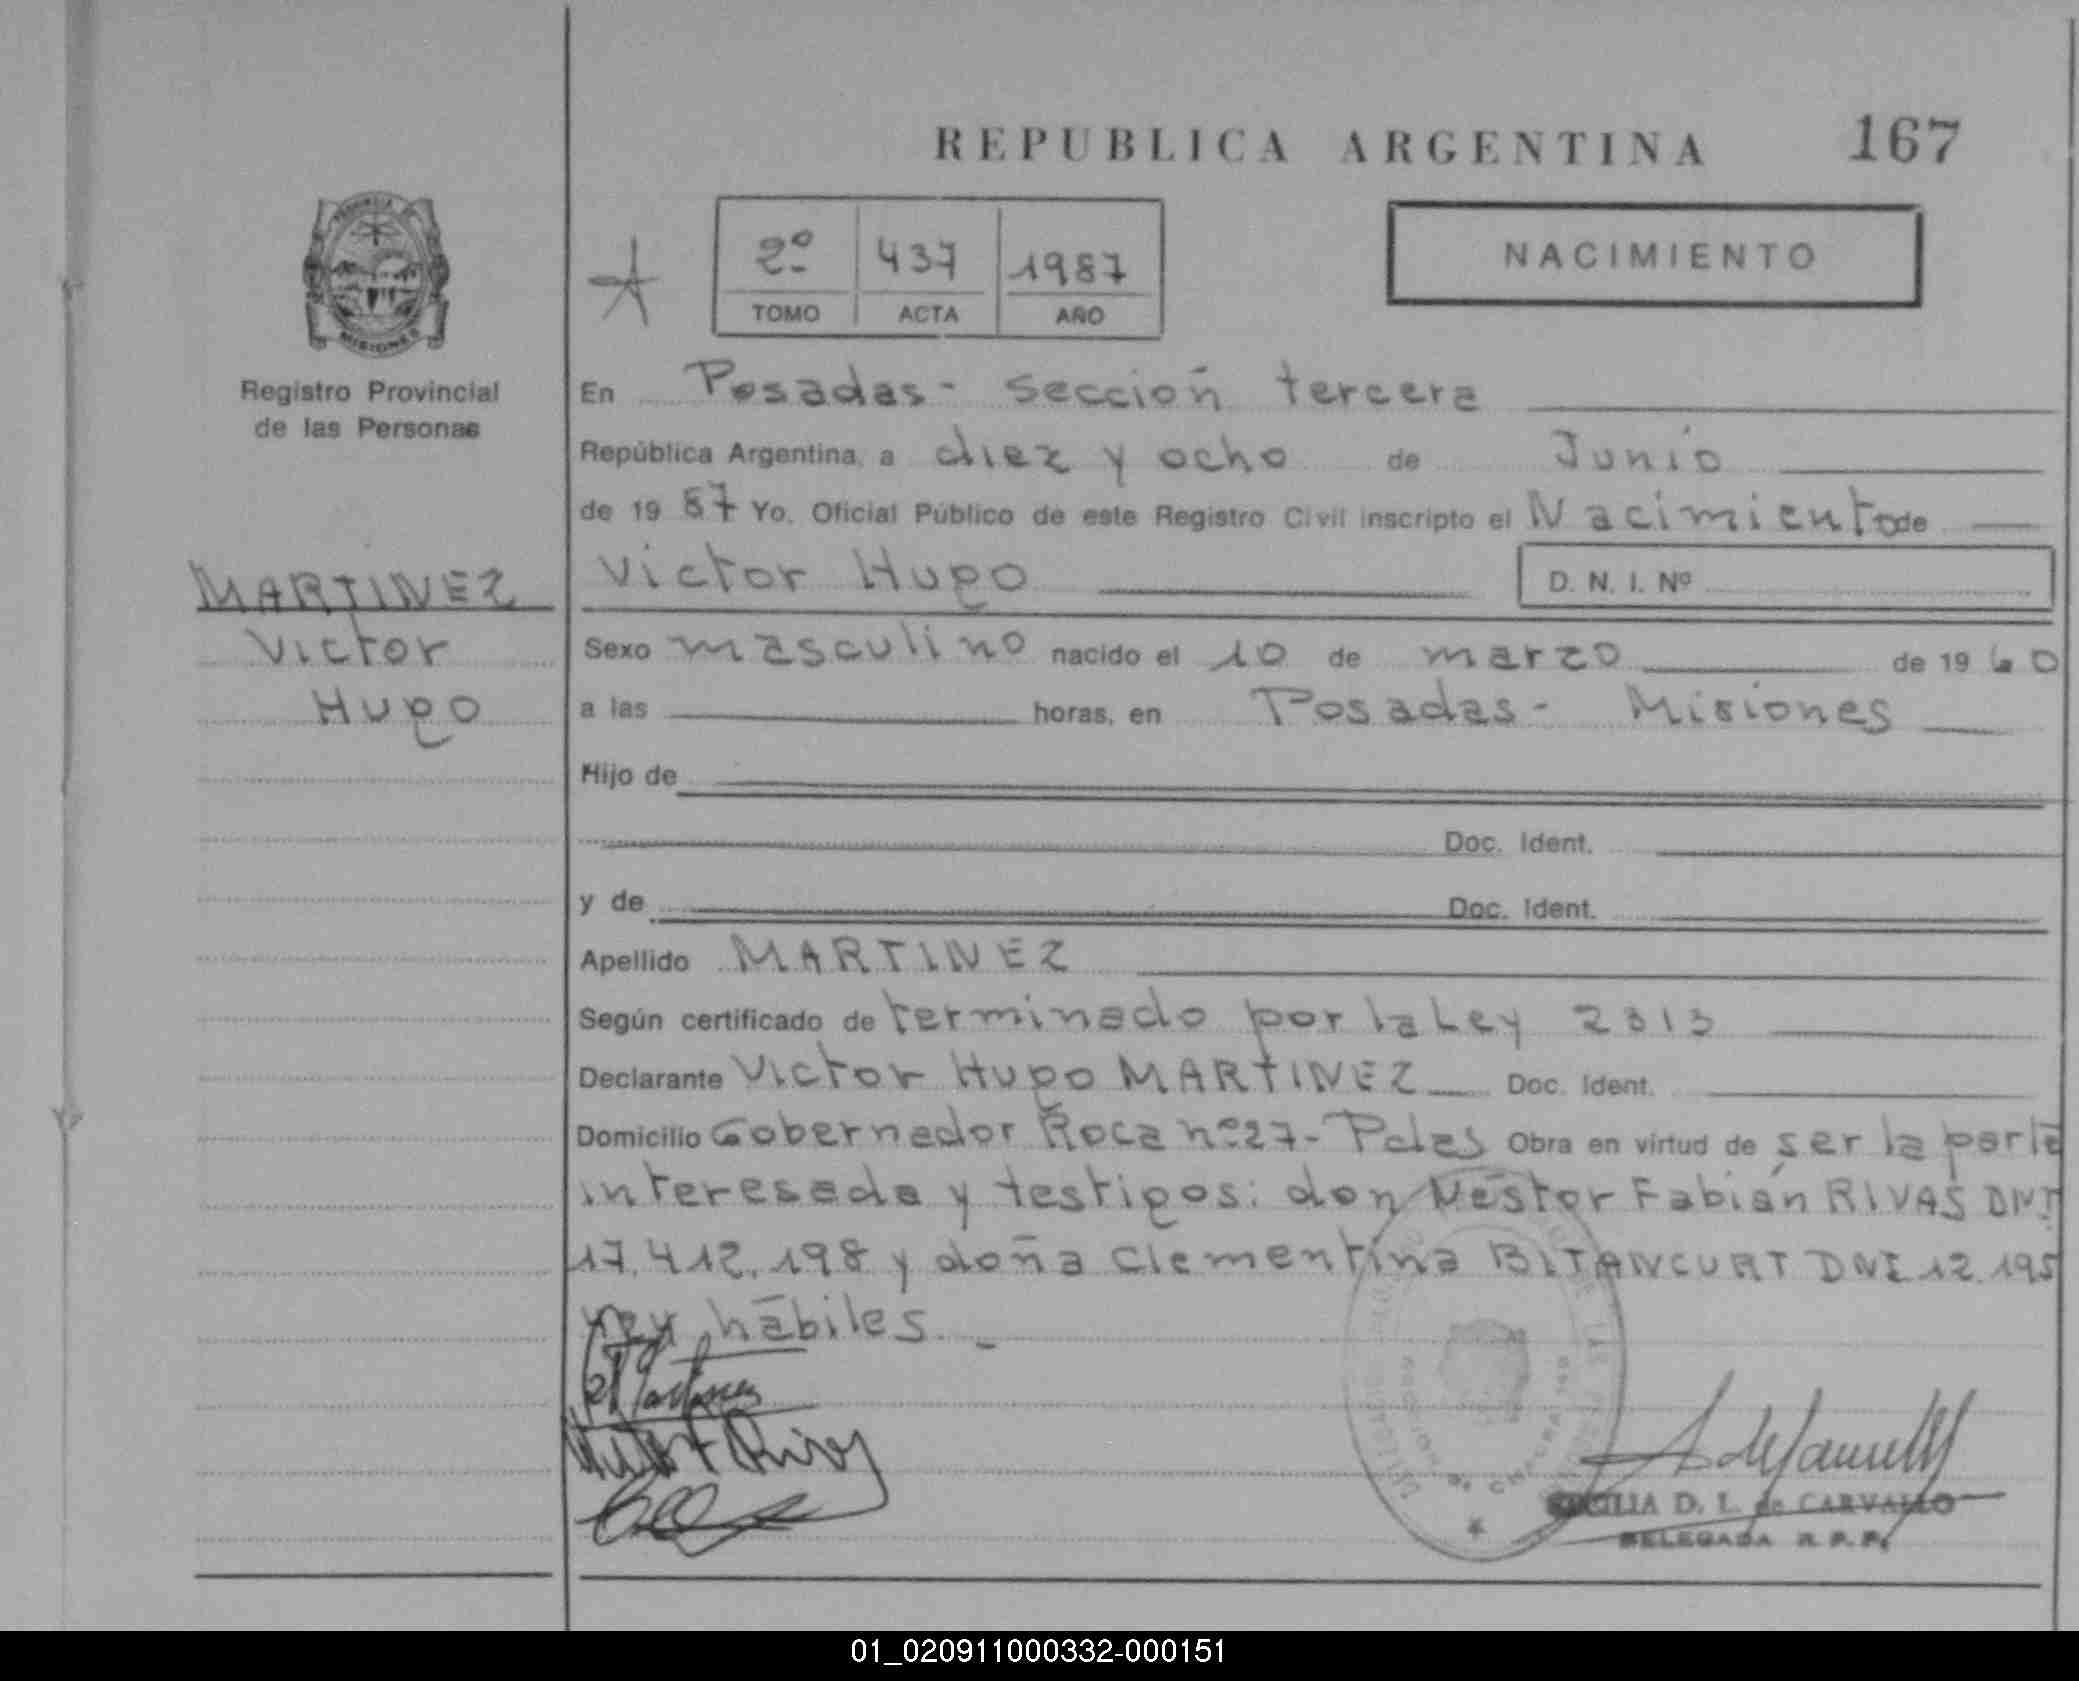 REPUBLICA ARGENTINA 167
PROVINCIA DE
MISIONES
2º 437 1987
TOMO ACTA AÑO
NACIMIENTO
Registro Provincial
de las Personas
MARTINEZ
Victor
Hugo
En Posadas - Sección tercera
República Argentina, a diez y ocho de Junio
de 1987 Yo, Oficial Público de este Registro Civil inscripto el Nacimiento de
Victor Hugo D. N. I. Nº
Sexo masculino nacido el 10 de marzo de 1960
a las horas, en Posadas - Misiones
Hijo de
Doc. Ident.
y de Doc. Ident.
Apellido MARTINEZ
Según certificado de terminado por la Ley 2313
Declarante Victor Hugo MARTINEZ Doc. Ident.
Domicilio Gobernador Roca nº 27 - Pdas Obra en virtud de ser la parte
interesada y testigos: don Néstor Fabián RIVAS DNI
17.412.198 y doña Clementina BITANCURT DNI 12.195
hábiles.
CECILIA D. L. de CARVALLO
DELEGADA R. P. P.
01_020911000332-000151